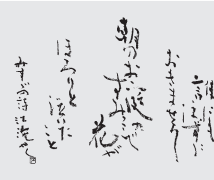 誰にも
言はずに
おきませう
朝のお庭の
すみつこで
花が
ほろりと
泣いた
こと
みすゞの詩